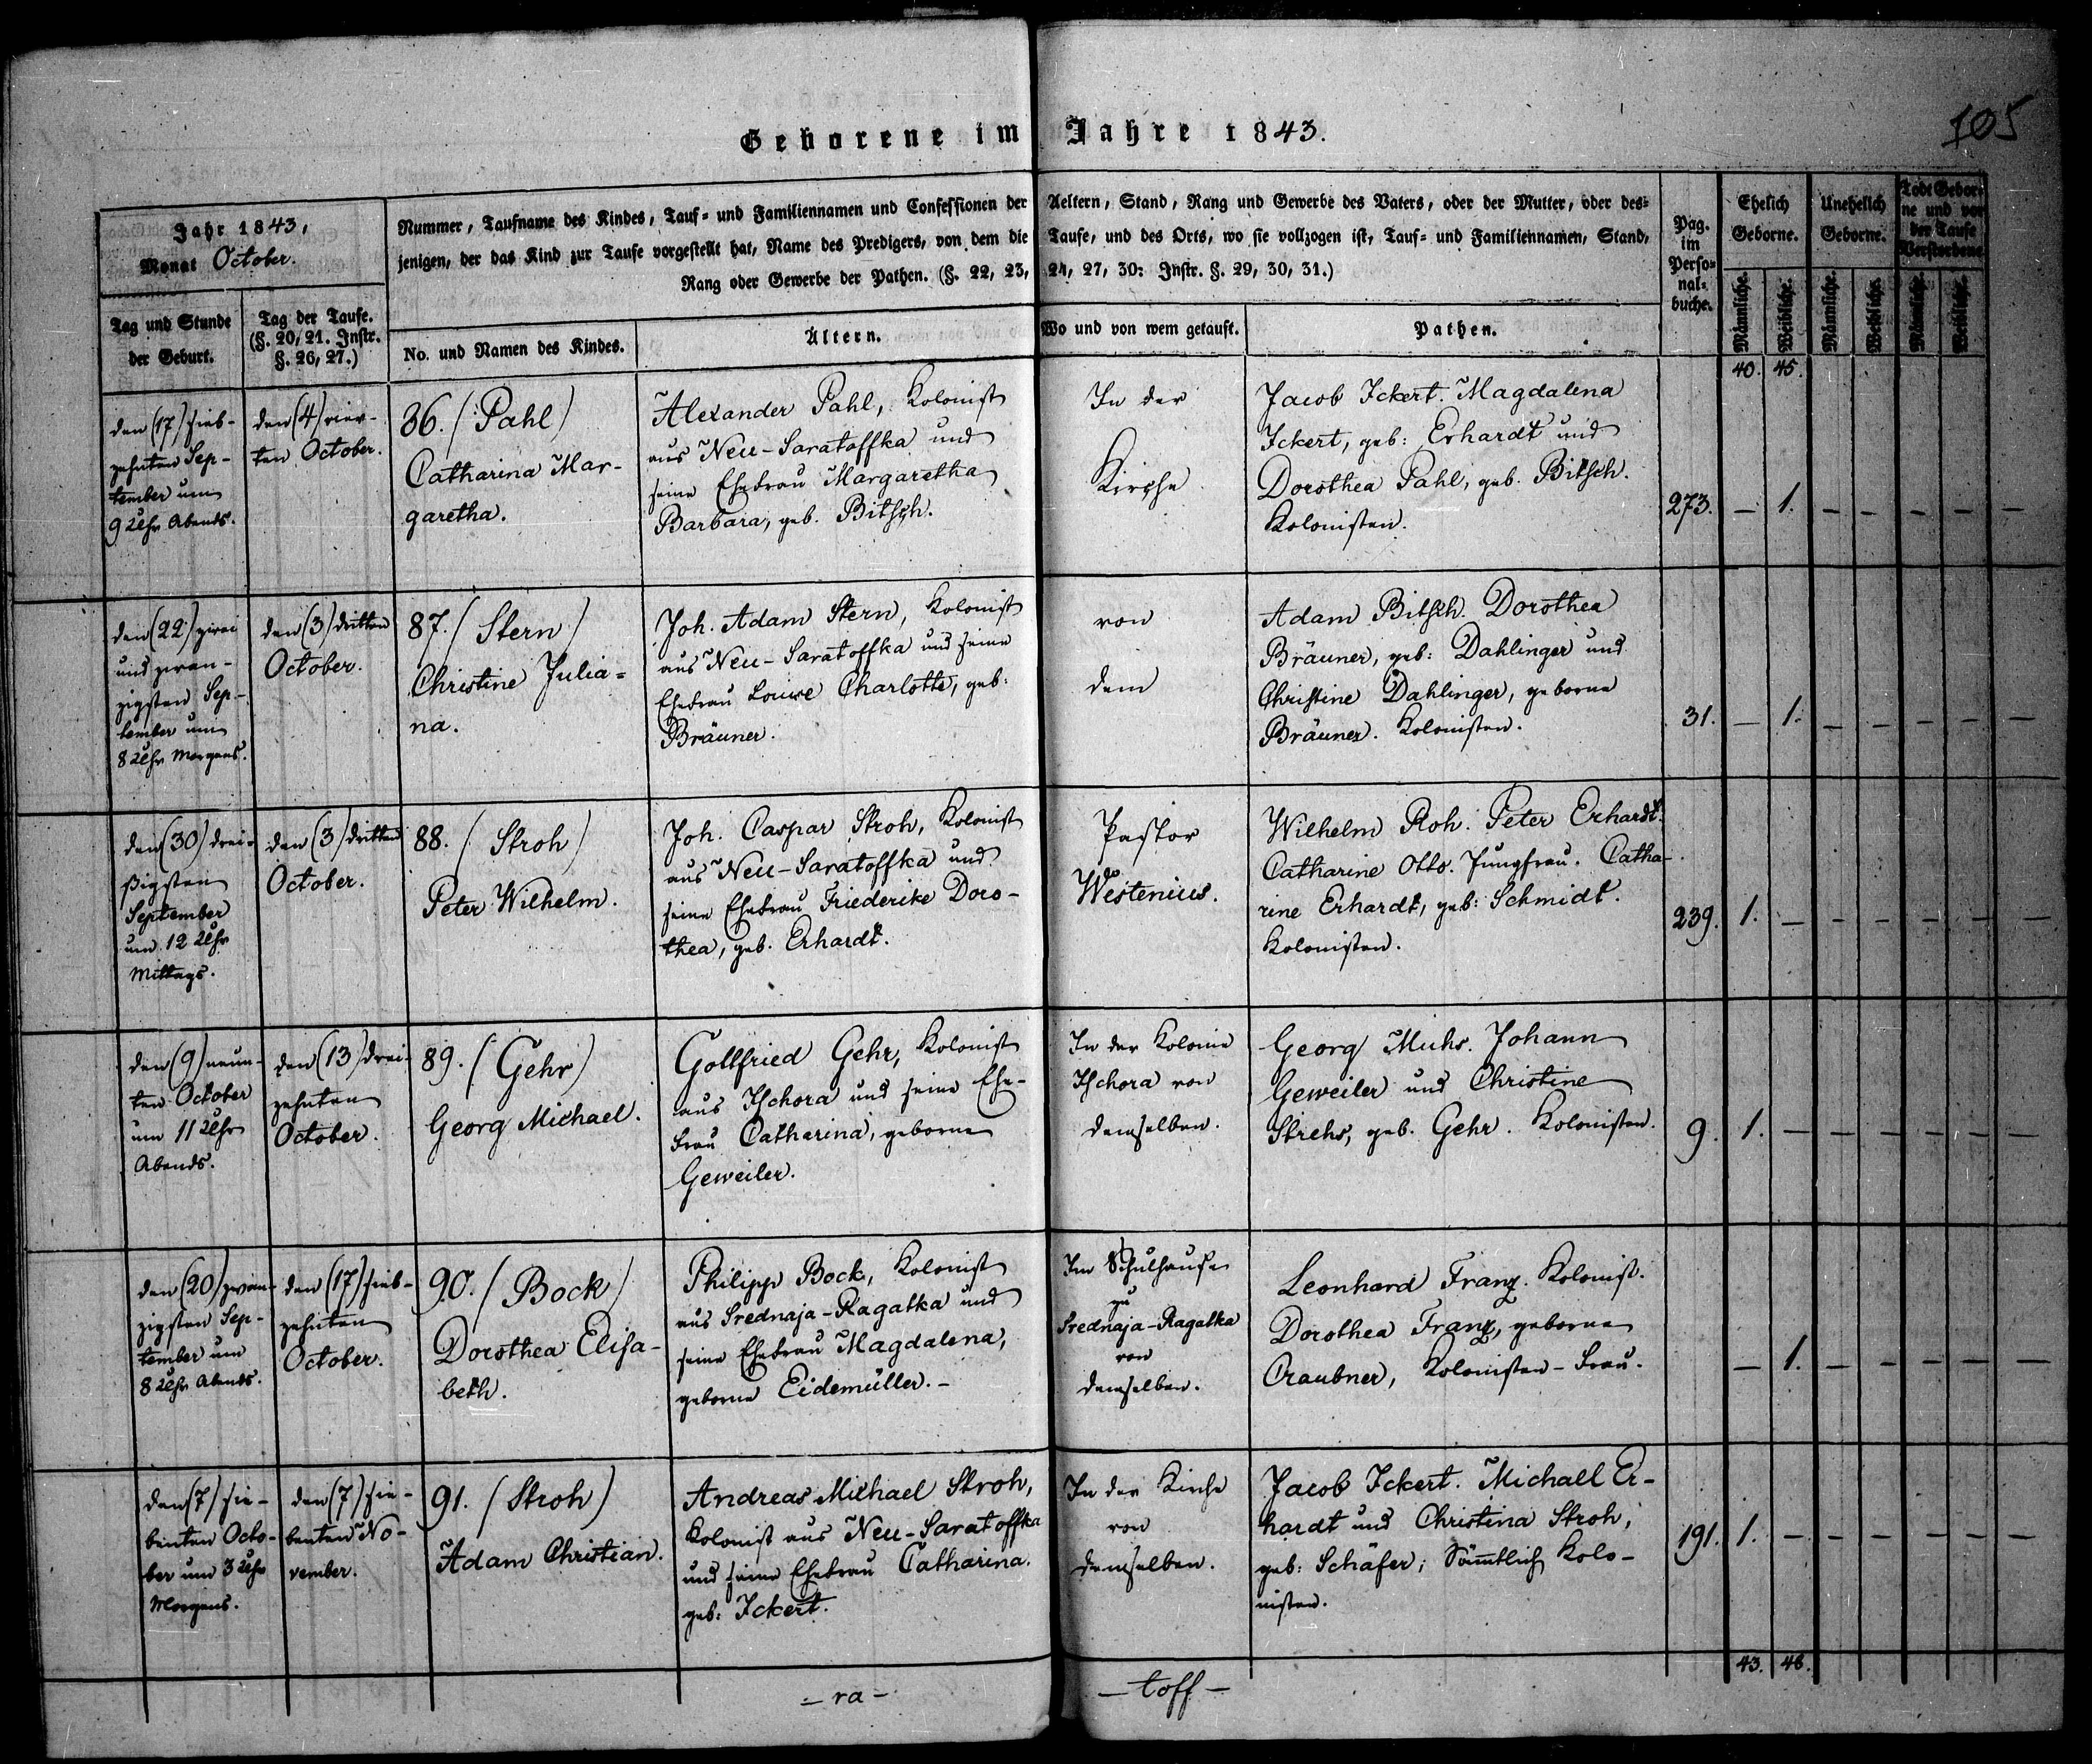 Geborene im Jahre 1843.
105
Jahr 1843,
Monat October.
Nummer, Taufname des Kindes, Tauf= und Familiennamen und Confessionen der Aeltern, Stand, Rang und Gewerbe des Vaters, oder der Mutter, oder des=
jenigen, der das Kind zur Taufe vorgestellt hat, Name des Predigers, von dem die Taufe, und des Orts, wo sie vollzogen ist, Tauf= und Familiennamen, Stand,
Rang oder Gewerbe der Pathen. (§. 22, 23, 24, 27, 30: Instr. §. 29, 30, 31.)
Pag.
im
Perso=
nal=
buche.
Ehelich
Geborne.
Unehelich
Geborne.
Todt Gebor=
ne und vor
der Taufe
Verstorbene
Tag und Stunde
der Geburt.
Tag der Taufe.
(§. 20, 21. Instr.
§. 26, 27.)
No. und Namen des Kindes.
Ältern.
Wo und von wem getauft.
Pathen.
Männliche.
Weibliche.
Männliche.
Weibliche.
Männliche.
Weibliche.
40. 45.
den (17) sieb-
zehnten Sep-
tember um
9 Uhr Abends.
den (4) vier-
ten October.
86. (Pahl)
Catharina Mar-
garetha.
Alexander Pahl, Kolonist
aus Neu-Saratoffka und
seine Ehefrau Margaretha
Barbara, geb. Bitsch.
In der
Kirche
Jacob Ickert. Magdalena
Ickert, geb: Erhardt und
Dorothea Pahl, geb. Bitsch.
Kolonisten.
273. — 1. — — — — —
den (22) zwei
und zwan-
zigsten Sep-
tember um
8 Uhr Morgens.
den (3) dritten
October.
87. (Stern)
Christine Julia=
na.
Joh. Adam Stern, Kolonist
aus Neu-Saratoffka und seine
Ehefrau Louise Charlotte, geb:
Bräuner.
von
dem
Adam Bitsch. Dorothea
Bräuner, geb: Dahlinger und
Christine Dahlinger, geborne
Bräuner. Kolonisten.
31. — 1. — — — — —
den (30) drei-
ßigsten
September
um 12 Uhr
Mittags.
den (3) dritten
October.
88. (Stroh)
Peter Wilhelm.
Joh. Caspar Stroh, Kolonist
aus Neu-Saratoffka und
seine Ehefrau Friederike Doro-
thea, geb. Erhardt.
Pastor
Westenius.
Wilhelm Roh. Peter Erhardt.
Catharine Otto. Jungfrau. Catha-
rine Erhardt, geb: Schmidt.
Kolonisten.
239. 1. — — — — — —
den (9) neun-
ten October
um 11 Uhr
Abends.
den (13) drei-
zehnten
October.
89. (Gehr)
Georg Michael.
Gottfried Gehr, Kolonist
aus Ischora und seine Ehe-
frau Catharina, geborne
Geweiler.
In der Kolonie
Ischora von
demselben.
Georg Muhs. Johann
Geweiler und Christine
Strehs, geb. Gehr. Kolonisten.
9. 1. — — — — — —
den (20) zwan-
zigsten Sep-
tember um
8 Uhr Abends.
den (17) sieb-
zehnten
October.
90. (Bock)
Dorothea Elisa-
beth.
Philipp Bock, Kolonist
aus Srednaja-Ragatka und
seine Ehefrau Magdalena,
geborne Eidemüller. -
Im Schulhause
zu
Srednaja-Ragatka
von
demselben.
Leonhard Franz. Kolonist.
Dorothea Franz, geborne
Craubner, Kolonisten-Frau.
— 1. — — — — —
den (7) sie-
benten Octo-
ber um 3 Uhr
Morgens.
den (7) sie-
benten No-
vember.
91. (Stroh)
Adam Christian.
Andreas Michael Stroh,
Kolonist aus Neu-Saratoffka
und seine Ehefrau Catharina.
geb: Ickert.
In der Kirche
von
demselben.
Jacob Ickert. Michael Er-
hardt und Christina Stroh,
geb: Schäfer; Sämtlich Kolo-
nisten.
191. 1. — — — — — —
43. 48.
- ra -
- toff -